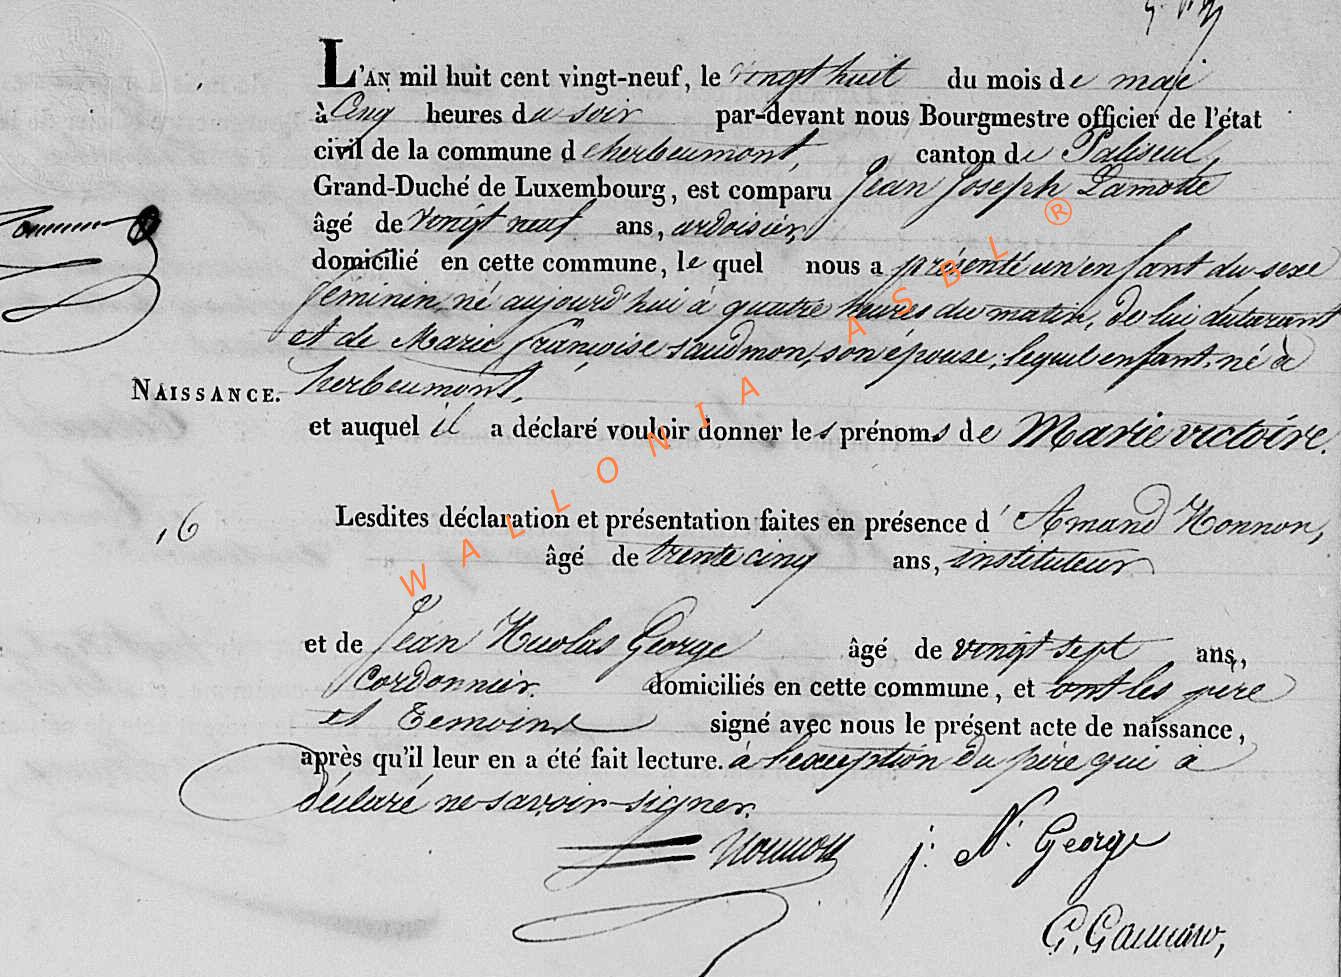 L'AN mil huit cent vingt-neuf, le vingt huit du mois de mai
à Cinq heures du soir par-devant nous Bourgmestre officier de l'état
civil de la commune d'herbeumont, canton de Paliseul,
Grand-Duché de Luxembourg, est comparu Jean Joseph Lamotte
âgé de vingt neuf ans, ardoisier,
domicilié en cette commune, lequel nous a présenté un enfant du sexe
féminin, né aujourd'hui à quatre heures du matin, de lui déclarant
et de Marie françoise saudmon, son épouse, lequel enfant, né à
NAISSANCE. herbeumont,
et auquel il a déclaré vouloir donner les prénoms de Marie victoire.
16 Lesdites déclaration et présentation faites en présence d'Amand Honnon,
âgé de trente cinq ans, instituteur
et de Jean Nicolas George âgé de vingt sept ans,
cordonnier. domiciliés en cette commune, et ont les père
et témoins signé avec nous le présent acte de naissance,
après qu'il leur en a été fait lecture. à l'exception du père qui a
déclaré ne savoir signer.
Honnon j. N. George
WALLONIA ASBL ®